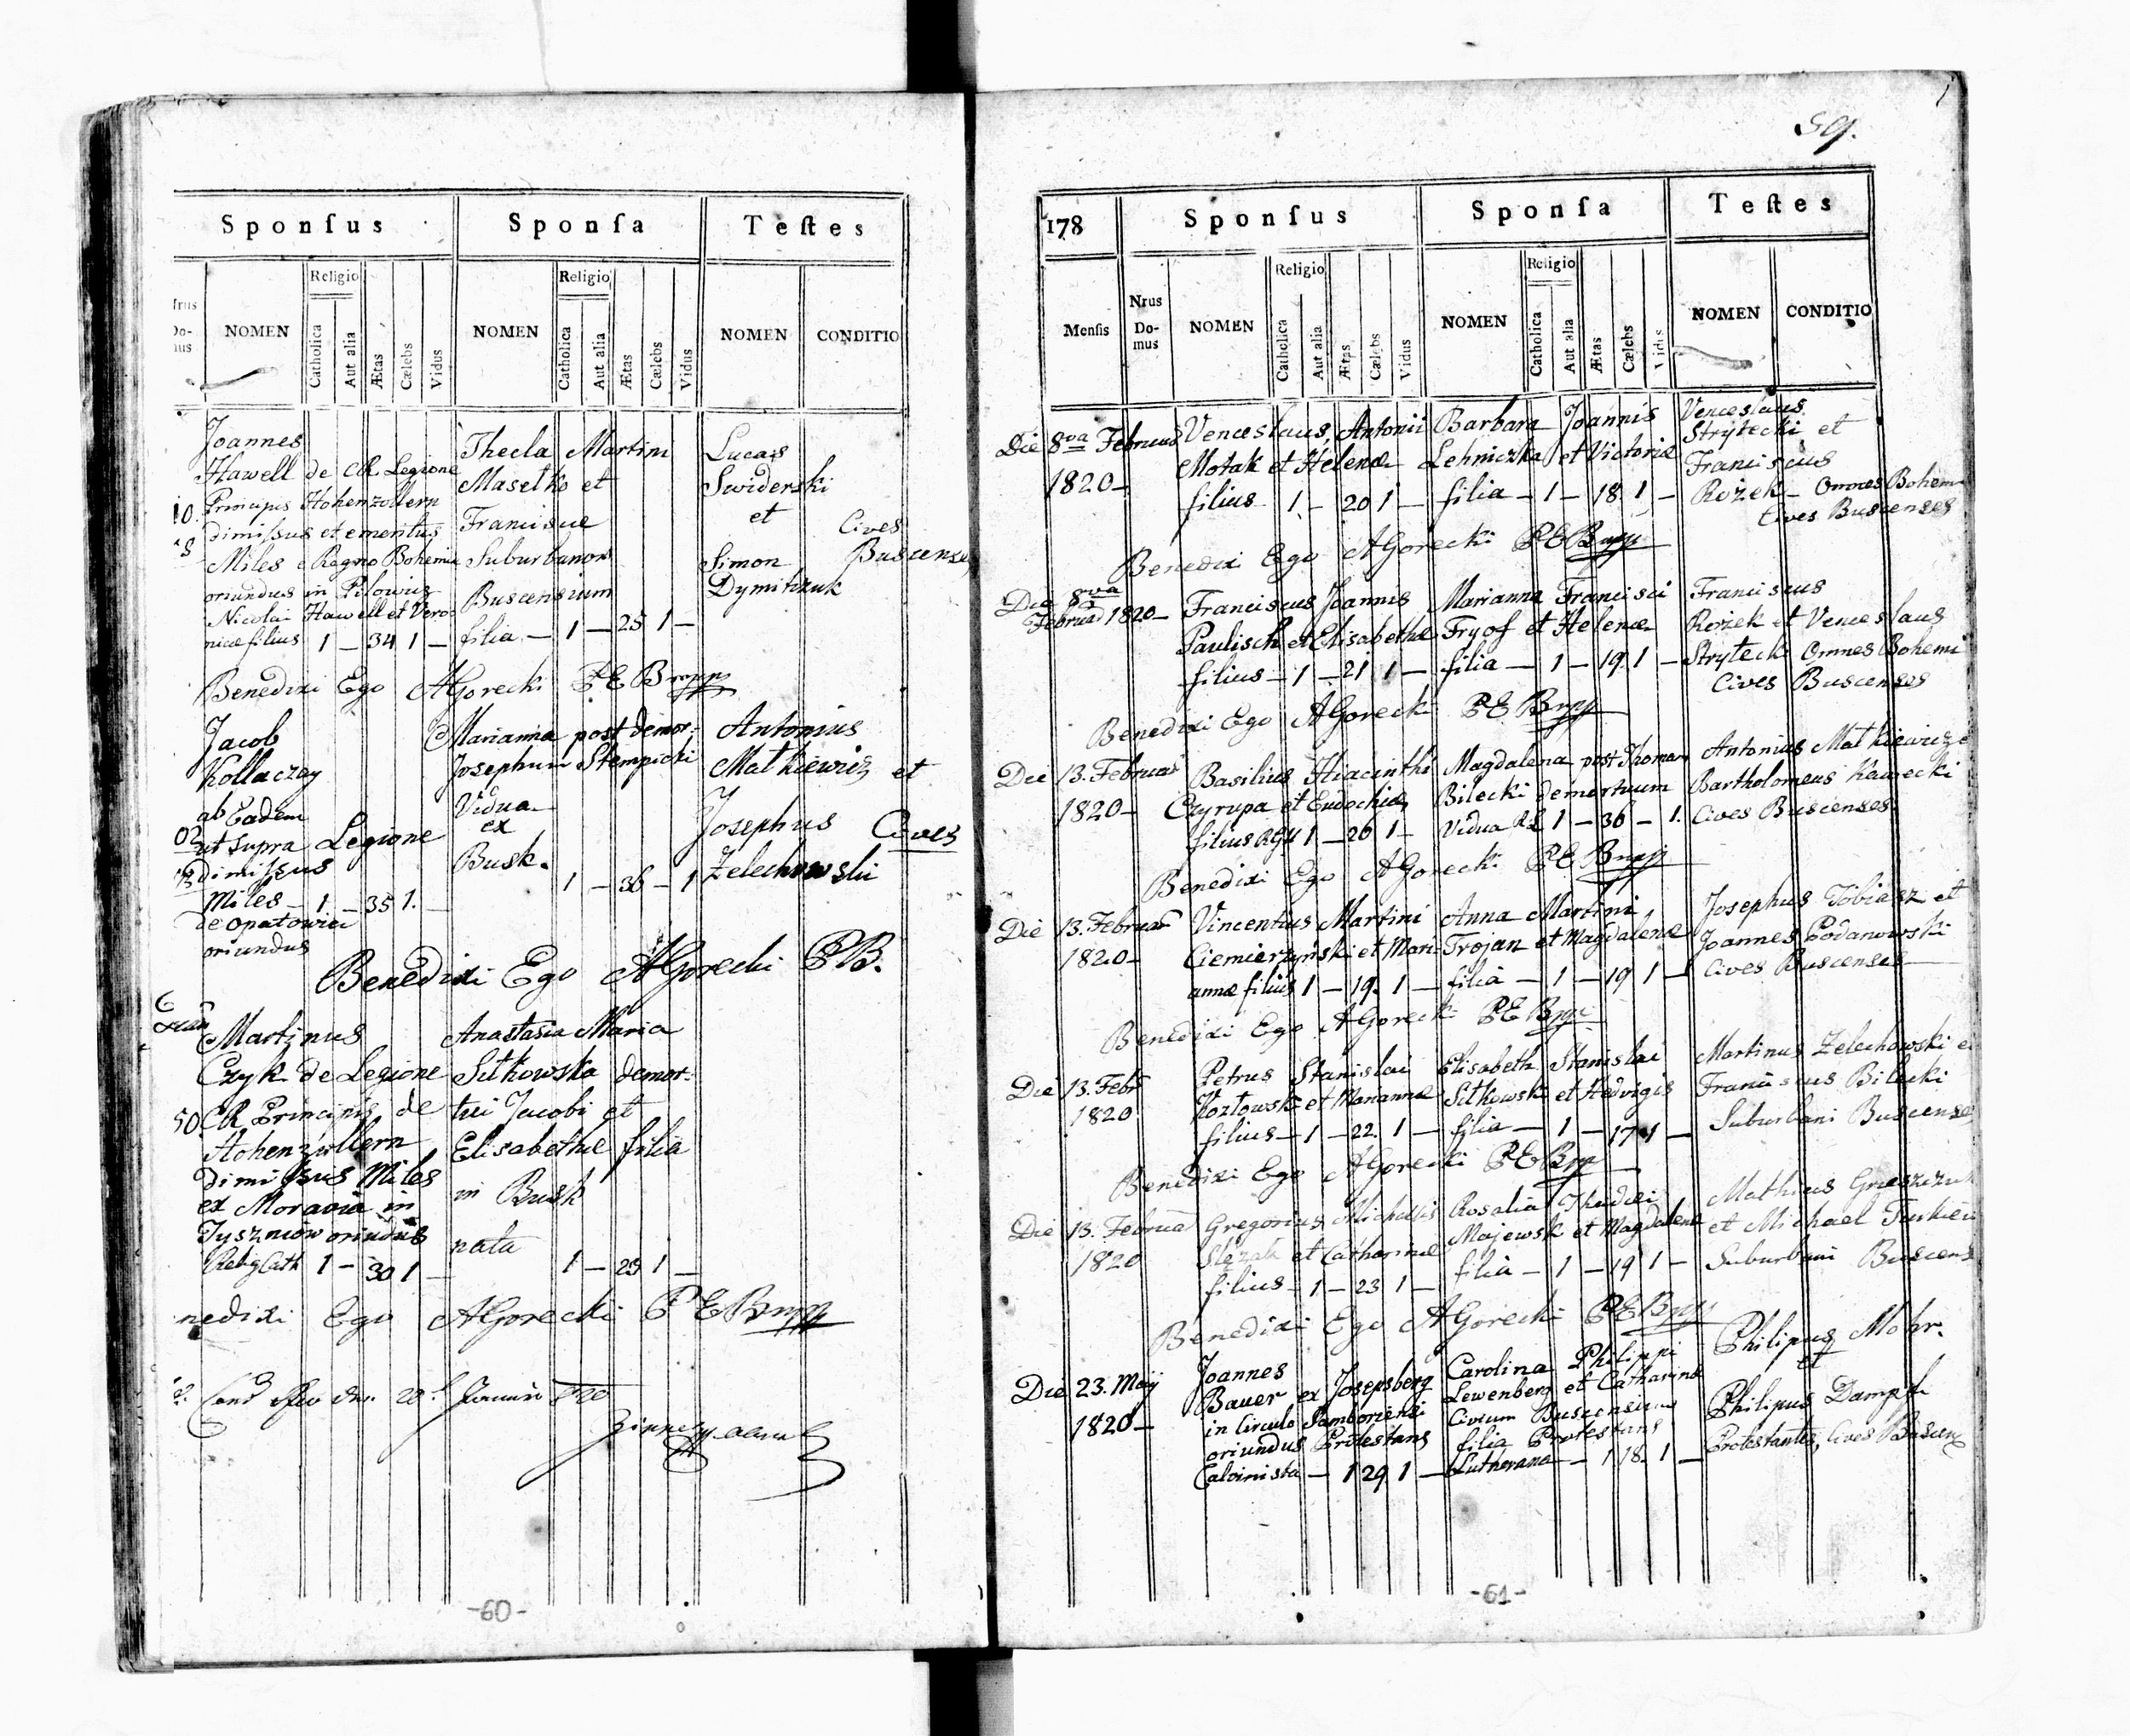 Sponſus Sponſa Teſtes
Religio Religio
NOMEN Catholica Aut alia Ætas Cælebs Vidus NOMEN Catholica Aut alia Ætas Cælebs Vidus NOMEN CONDITIO
Joannes Thecla Martini Lucas
Hawell de CR Legione Maselko et Swiderski
Principis Hohenzollern Franciscae et Cives
dimissus et emeritus Suburbanor Simon Buscenses
Miles e Regno Bohemia Buscensium Dymitrzuk
oriundus in Pilowiz
Nicolai Hawell et Vero
nicæ filius 1 – 34 1 – filia – 1 – 25 1 –
Benedixi Ego AGorecki PEB mpp
Jacob Marianna post demor: Antonius
Kollaczey Josephum Stempicki Matkiewicz et
ab Eadem Vidua Josephus Cives
ut Supra Legione ex Zelechowski
dimissus Busk.
Miles – 1 – 35 1. – 1 – 36 – 1
de Opatowicz
oriundus
Benedixi Ego AGorecki PB.
Martinus Anastasia Maria
Czyk de Legione Sitkowska demor-
50 CR Principis de tui Jacobi et
Hohenzollern Elisabethæ filia
dimissus Miles in Busk
ex Moravia in nata
Tyszniow oriundus
Relig Cath 1 – 30 1 – 1 – 23 1 –
nedixi Ego AGorecki PEB mpp
59.
178 Sponſus Sponſa Teſtes
Religio Religio
Menſis Nrus Do- mus NOMEN Catholica Aut alia Ætas Cælebs Vidus NOMEN Catholica Aut alia Ætas Cælebs Vidus NOMEN CONDITIO
Die 8va Februar Venceslaus, Antonii Barbara Joannis Venceslaus
Motak et Helenæ Lehniczka et Victoriæ Strytecki et
1820 – filius 1 – 20 1 – filia – 1 – 18 1 – Franciscus
Rożek – Omnes Bohemi
Cives Buscenses
Benedixi Ego AGorecki PEB mpp
Die 8va Franciscus Joannis Marianna Francisci Franciscus
Februar 1820 – Paulisch et Elisabethæ Fryof et Helenæ Rożek et Venceslaus
filius – 1 – 21 1 – filia – 1 – 19 1 – Strytecki Omnes Bohemi
Cives Buscenses
Benedixi Ego AGorecki PEB mpp
Die 13. Februar Basilius Hiacinthi Magdalena post Thomam Antonius Matkiewicz
1820 – Czyrupa et Eudochiæ Bilecki demortuum Bartholomeus Kawecki
filius 1 – 26 1 – Vidua 1 – 36 – 1. Cives Buscenses
Benedixi Ego AGorecki PEB mpp
Die 13. Februar Vincentius Martini Anna Martini Josephus Tobiasz et
1820 – Ciemierzyński et Mari- Trojan et Magdalenæ Joannes Podanowski
annæ filius 1 – 19. 1 – filia – 1 – 19 1 – Cives Buscenses
Benedixi Ego AGorecki PEB mpp
Die 13. Febr Petrus Stanislai Elisabeth Stanislai Martinus Zelechowski et
1820 Kozłowski et Mariannæ Sitkowski et Hedvigis Franciscus Bilecki
filius – 1 – 22. 1 – filia – 1 – 17 1 – Suburbani Buscenses
Benedixi Ego AGorecki PEB mpp
Die 13. Februar Gregorius Michaelis Rosalia Thadæi Mathias
1820 Slęzak et Catharinæ Majewsk et Magdalenæ et Michael
filius – 1 – 23 1 – filia – 1 – 19 1 – Suburbani Buscens
Benedixi Ego AGorecki PEB mpp
Die 23. Maij Joannes Carolina Philippi Philipus Mohr.
1820 – Bauer ex Josepsberg Lewenberg et Catharinæ et
in Circulo Samboriensi Civium Buscensium Philipus Dampf
oriundus Protestans filia Protestans Protestantes, Cives Buscens
Calvinista – 1 29 1 – Lutherana – 1 18. 1 –
-60-
-61-